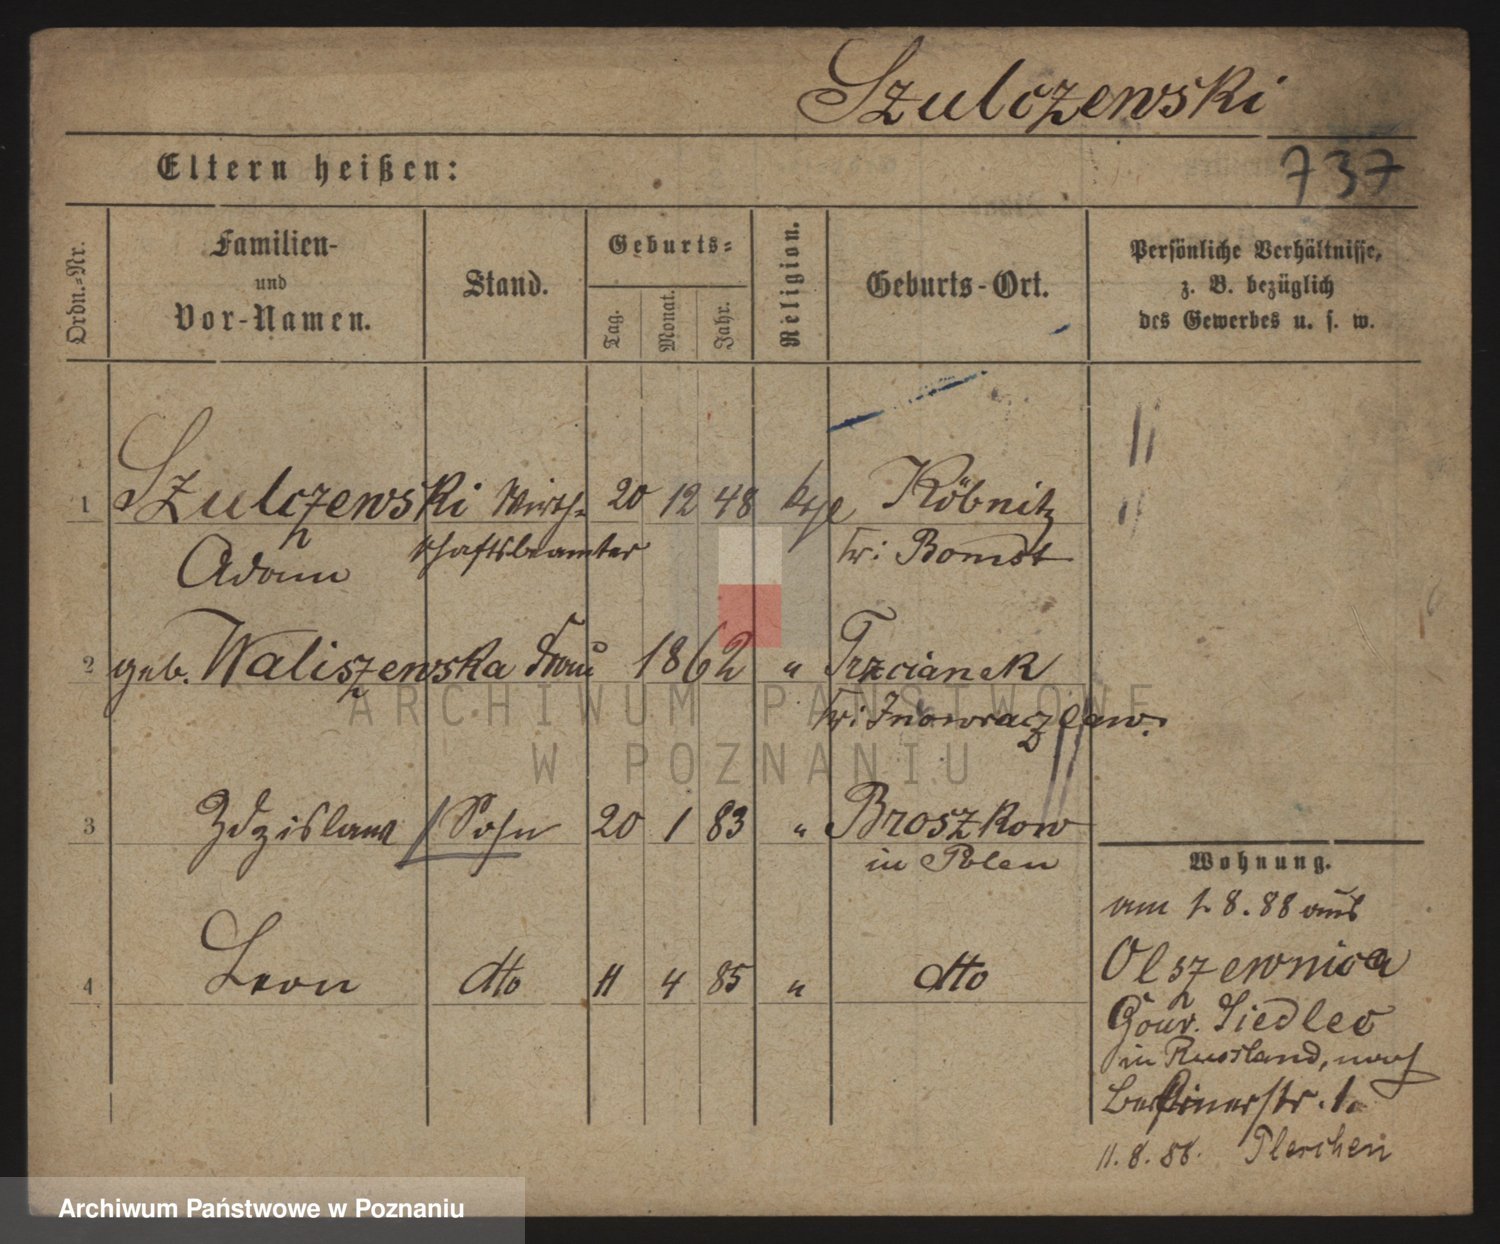 Szulczewski
Eltern heißen:
737
Ordn.-Nr.
Familien-
und
Vor-Namen.
Stand.
Geburts-
Tag.
Monat.
Jahr.
Religion.
Geburts-Ort.
Persönliche Verhältnisse,
z. B. bezüglich
des Gewerbes u. s. w.
1 Szulczewski Wirth- 20 12 48 Köbnitz
Adam schaftsbeamter Kr: Bomst
2 geb. Waliszewska Frau 1862 " Trzcianek
Kr: Inowrazlaw.
3 Zdzislaw Sohn 20 1 83 " Broszkow
in Polen
4 Leon dto 11 4 85 " dto
Wohnung.
am 1.8.88 aus
Olszewnica
Gouv. Siedlec
in Russland, nach
Berlinerstr. 1.
11.8.88. Pleschen
ARCHIWUM PAŃSTWOWE
W POZNANIU
Archiwum Państwowe w Poznaniu